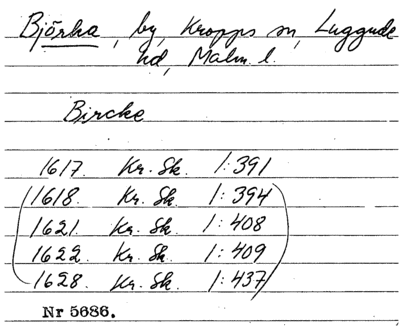 Björka, by, Kropps sn, Luggude
hd, Malm. l.
Bircke
1617. Kr. Sk. 1:391
(1618. Kr. Sk. 1:394)
1621. Kr. Sk. 1:408
1622. Kr. Sk. 1:409
1628. Kr. Sk. 1:437
Nr 5686.